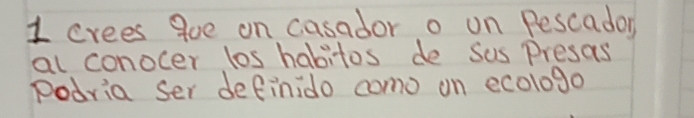 1 crees que un casador o un Pescador,
al conocer los habitos de sus Presas
Podria ser definido como un ecologo